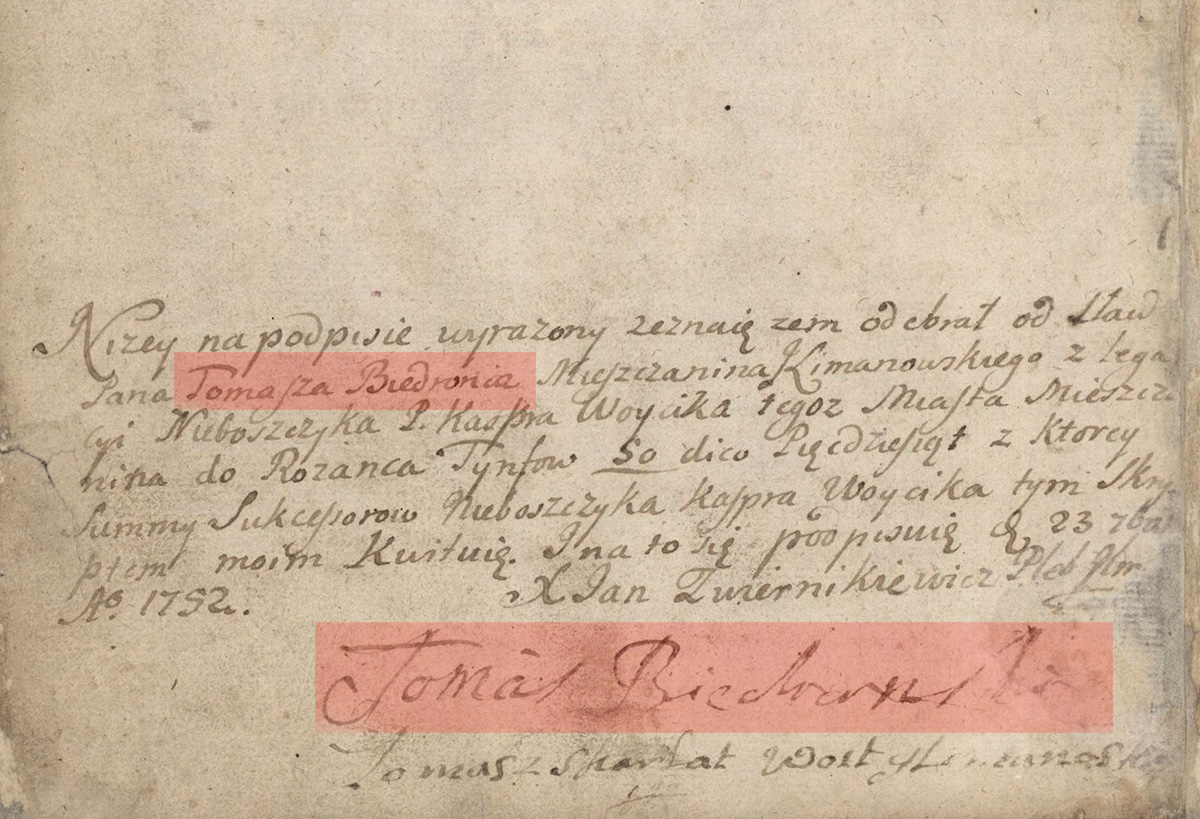 Nizey na podpisie wyrazony zeznaię zem odebrał od Sław
Pana Tomasza Biedronia Mieszczanina Limanowskiego z lega
cyi Nieboszczyka P. Kaspra Woycika tegoz Miasta Mieszcza
nina do Rozanca Tynfow 50 dico Pięcdziesiąt z ktorey
Summy Sukcessorow Nieboszczyka Kaspra Woycika tym Skry
ptem moim Kwituię. I na to się podpisuię D. 23 7bra
Ao 1752.
X Jan Zwiernikiewicz Pleb Llm
Tomas Biedronski
Tomasz Woyt